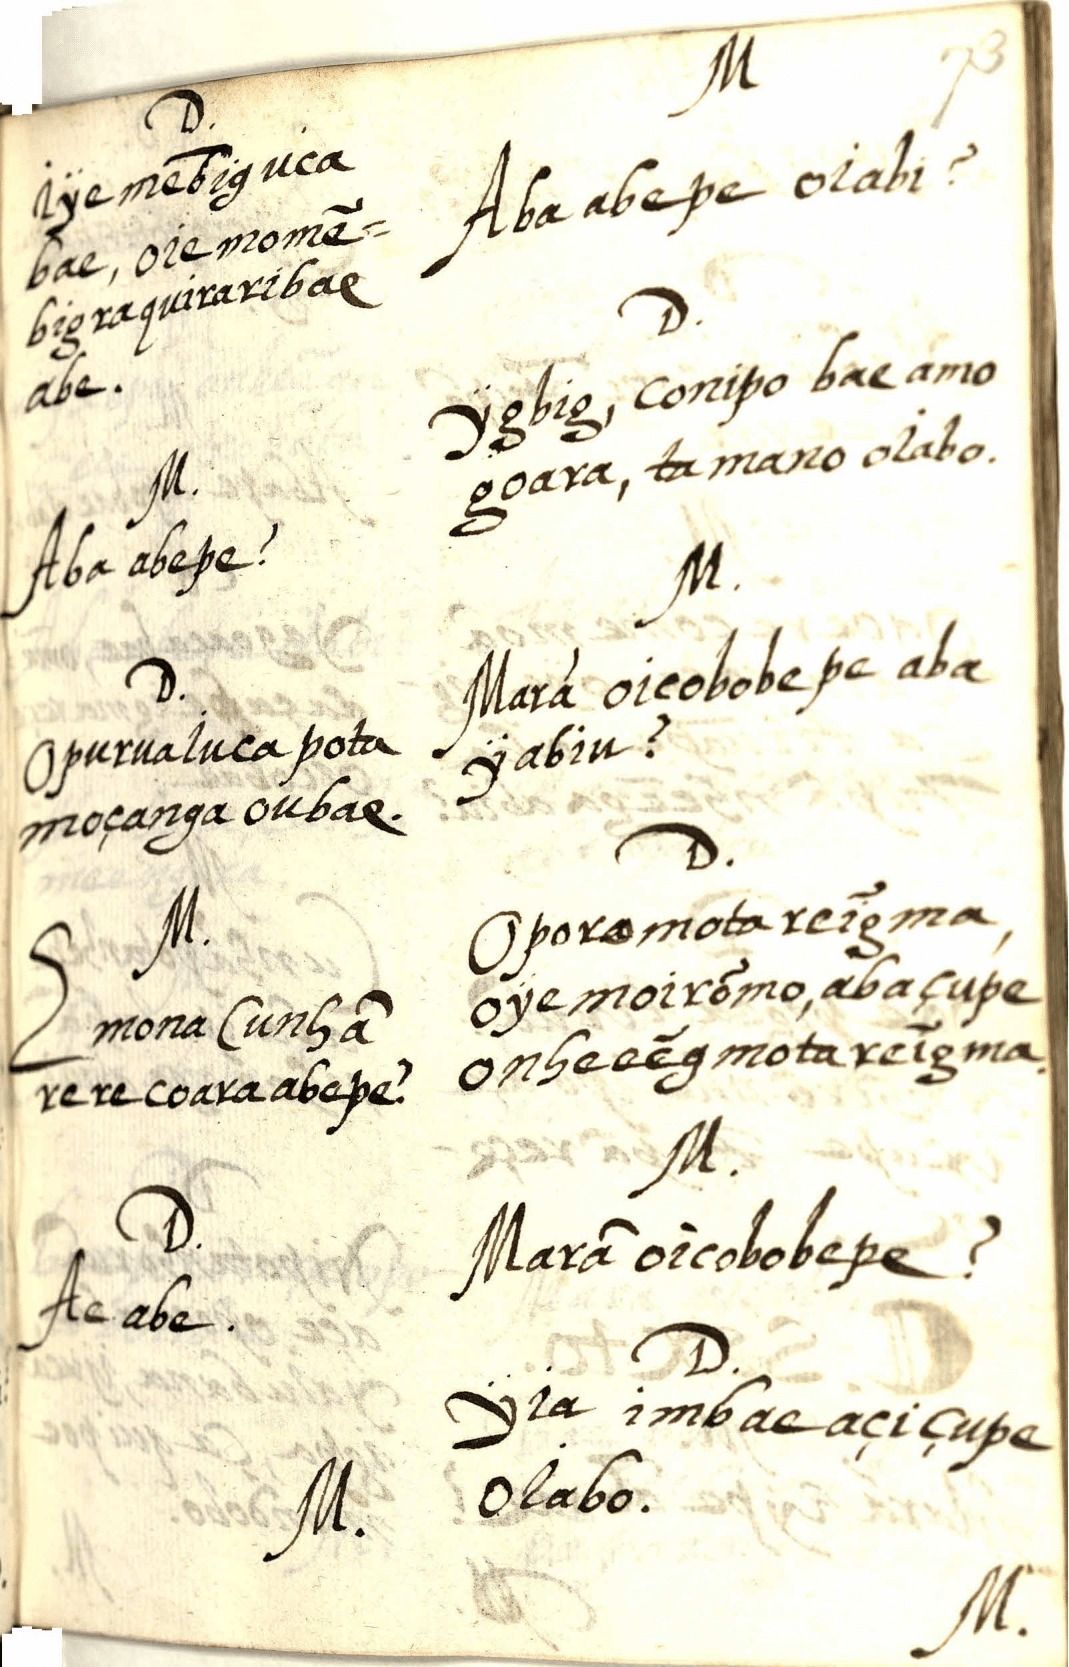 D.
iÿe mẽbig uca
bae, oie momẽ=
bigraquiraribae
abe.
M.
Aba abepe?
D.
Opurua iuca pota
moçanga oubae.
M.
Emona Cunhã
rerecoara abepe?
D.
Ae abe.
M.
73
M
Aba abepe oiabi?
D.
ÿgbig, conipo bae amo
goara, ta mano oiabo.
M.
Marã oicobobepe aba
ÿabiu?
D.
Oporamotareĩgma,
oÿemoirõmo, ãbaçupe
onheeẽgmotareĩgma.
M.
Marã oicobobepe?
D.
ÿia imbae açiçupe
oiabo.
M.